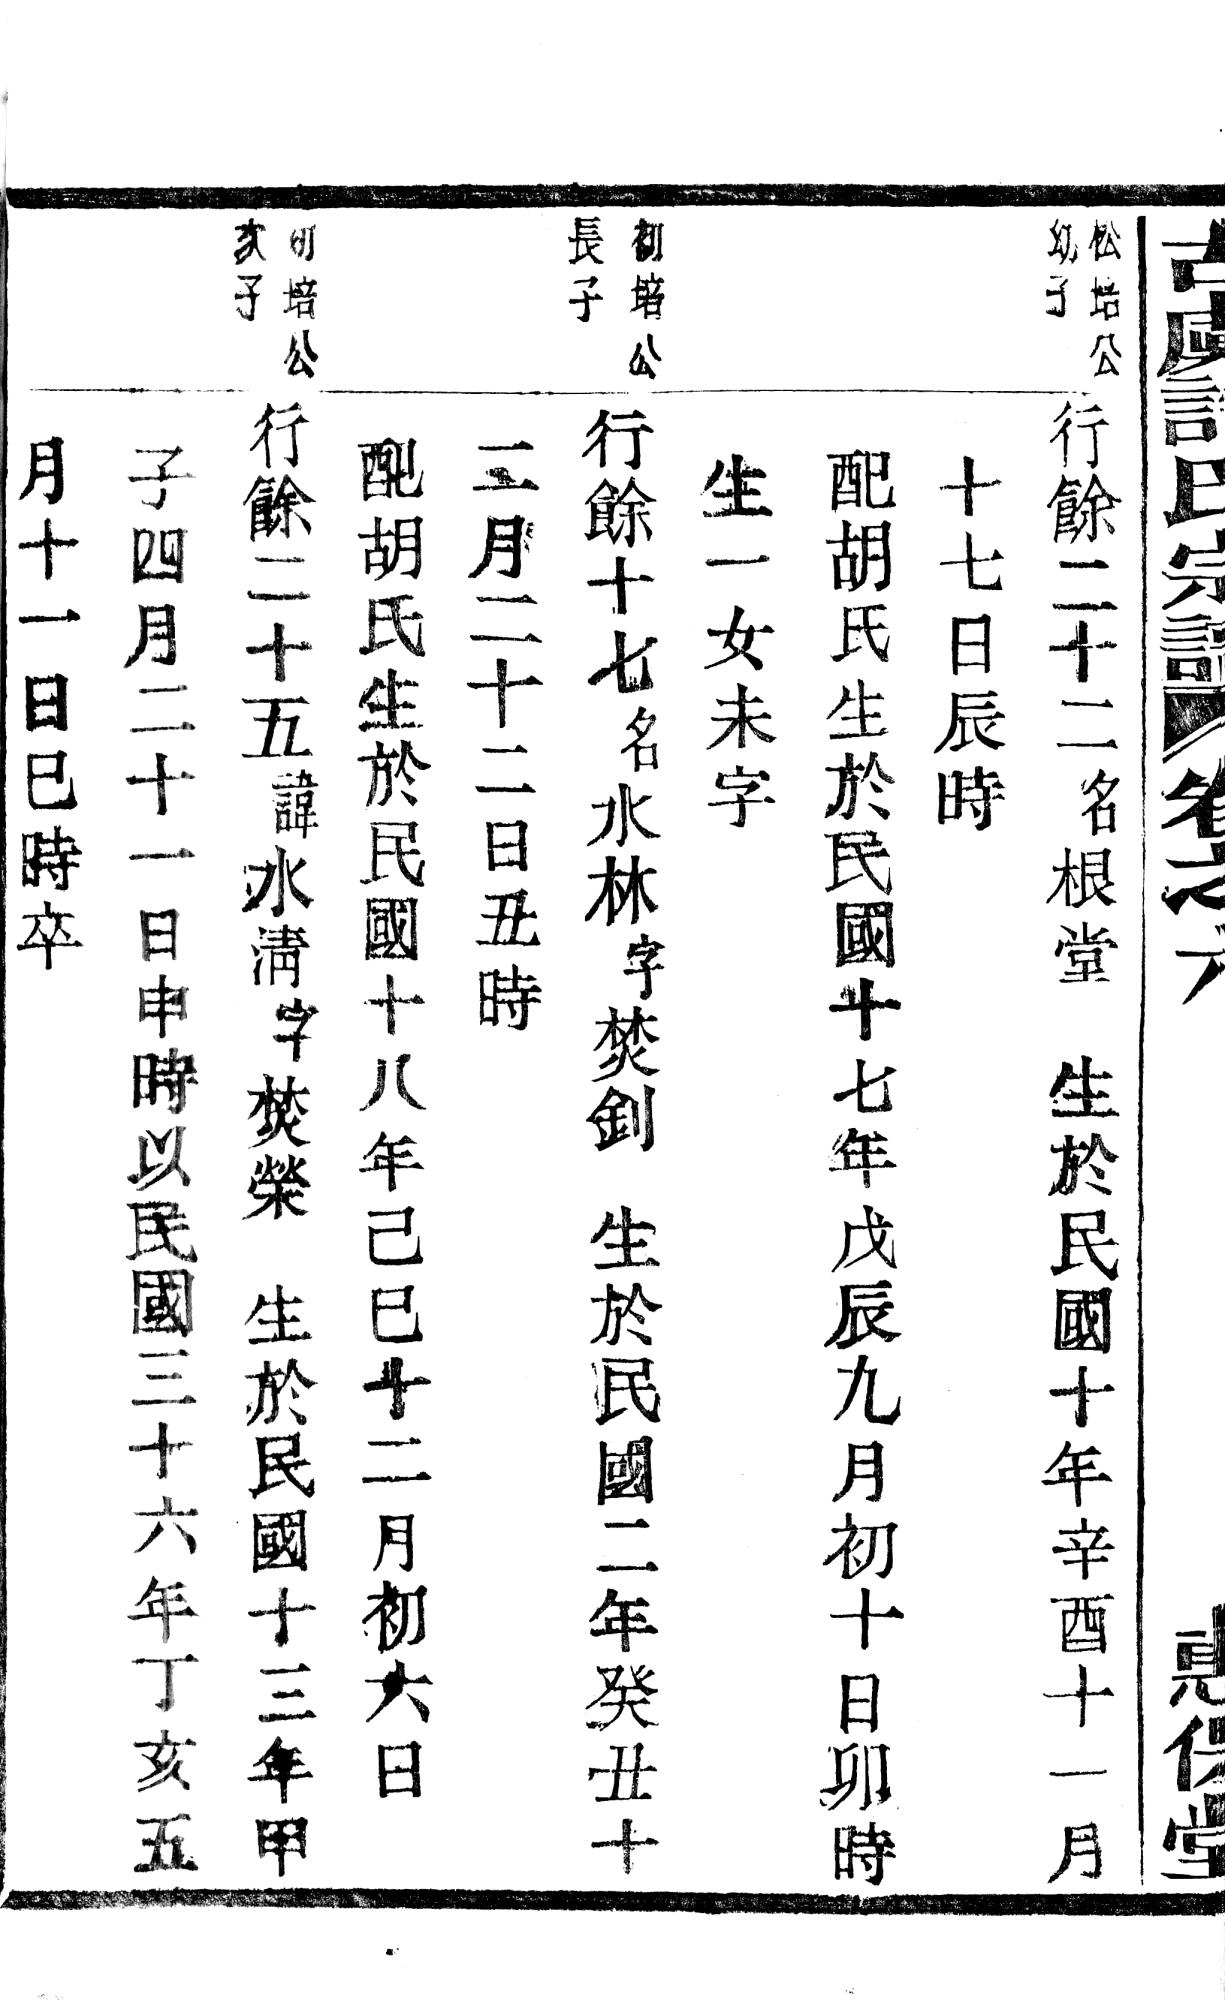 古虞許氏宗譜 卷之六 惠保堂
松培公
幼子
行餘二十二名根堂 生於民國十年辛酉十一月
十七日辰時
配胡氏生於民國十七年戊辰九月初十日卯時
生一女未字
初培公
長子
行餘十七名水林字焚釗 生於民國二年癸丑十
二月二十二日丑時
配胡氏生於民國十八年己巳十二月初六日
初培公
次子
行餘二十五諱水淸字焚榮 生於民國十三年甲
子四月二十一日申時以民國三十六年丁亥五
月十一日巳時卒